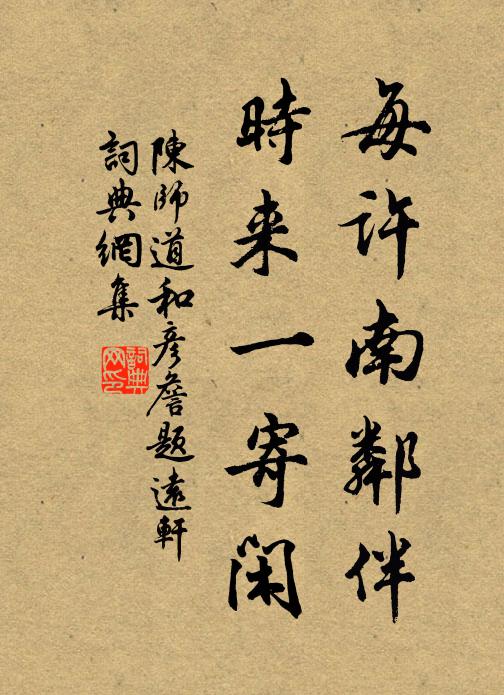 每许南鄰伴
時来一寄閑
陳師道和彦詹題遠軒
詞典網集
詞典
网印